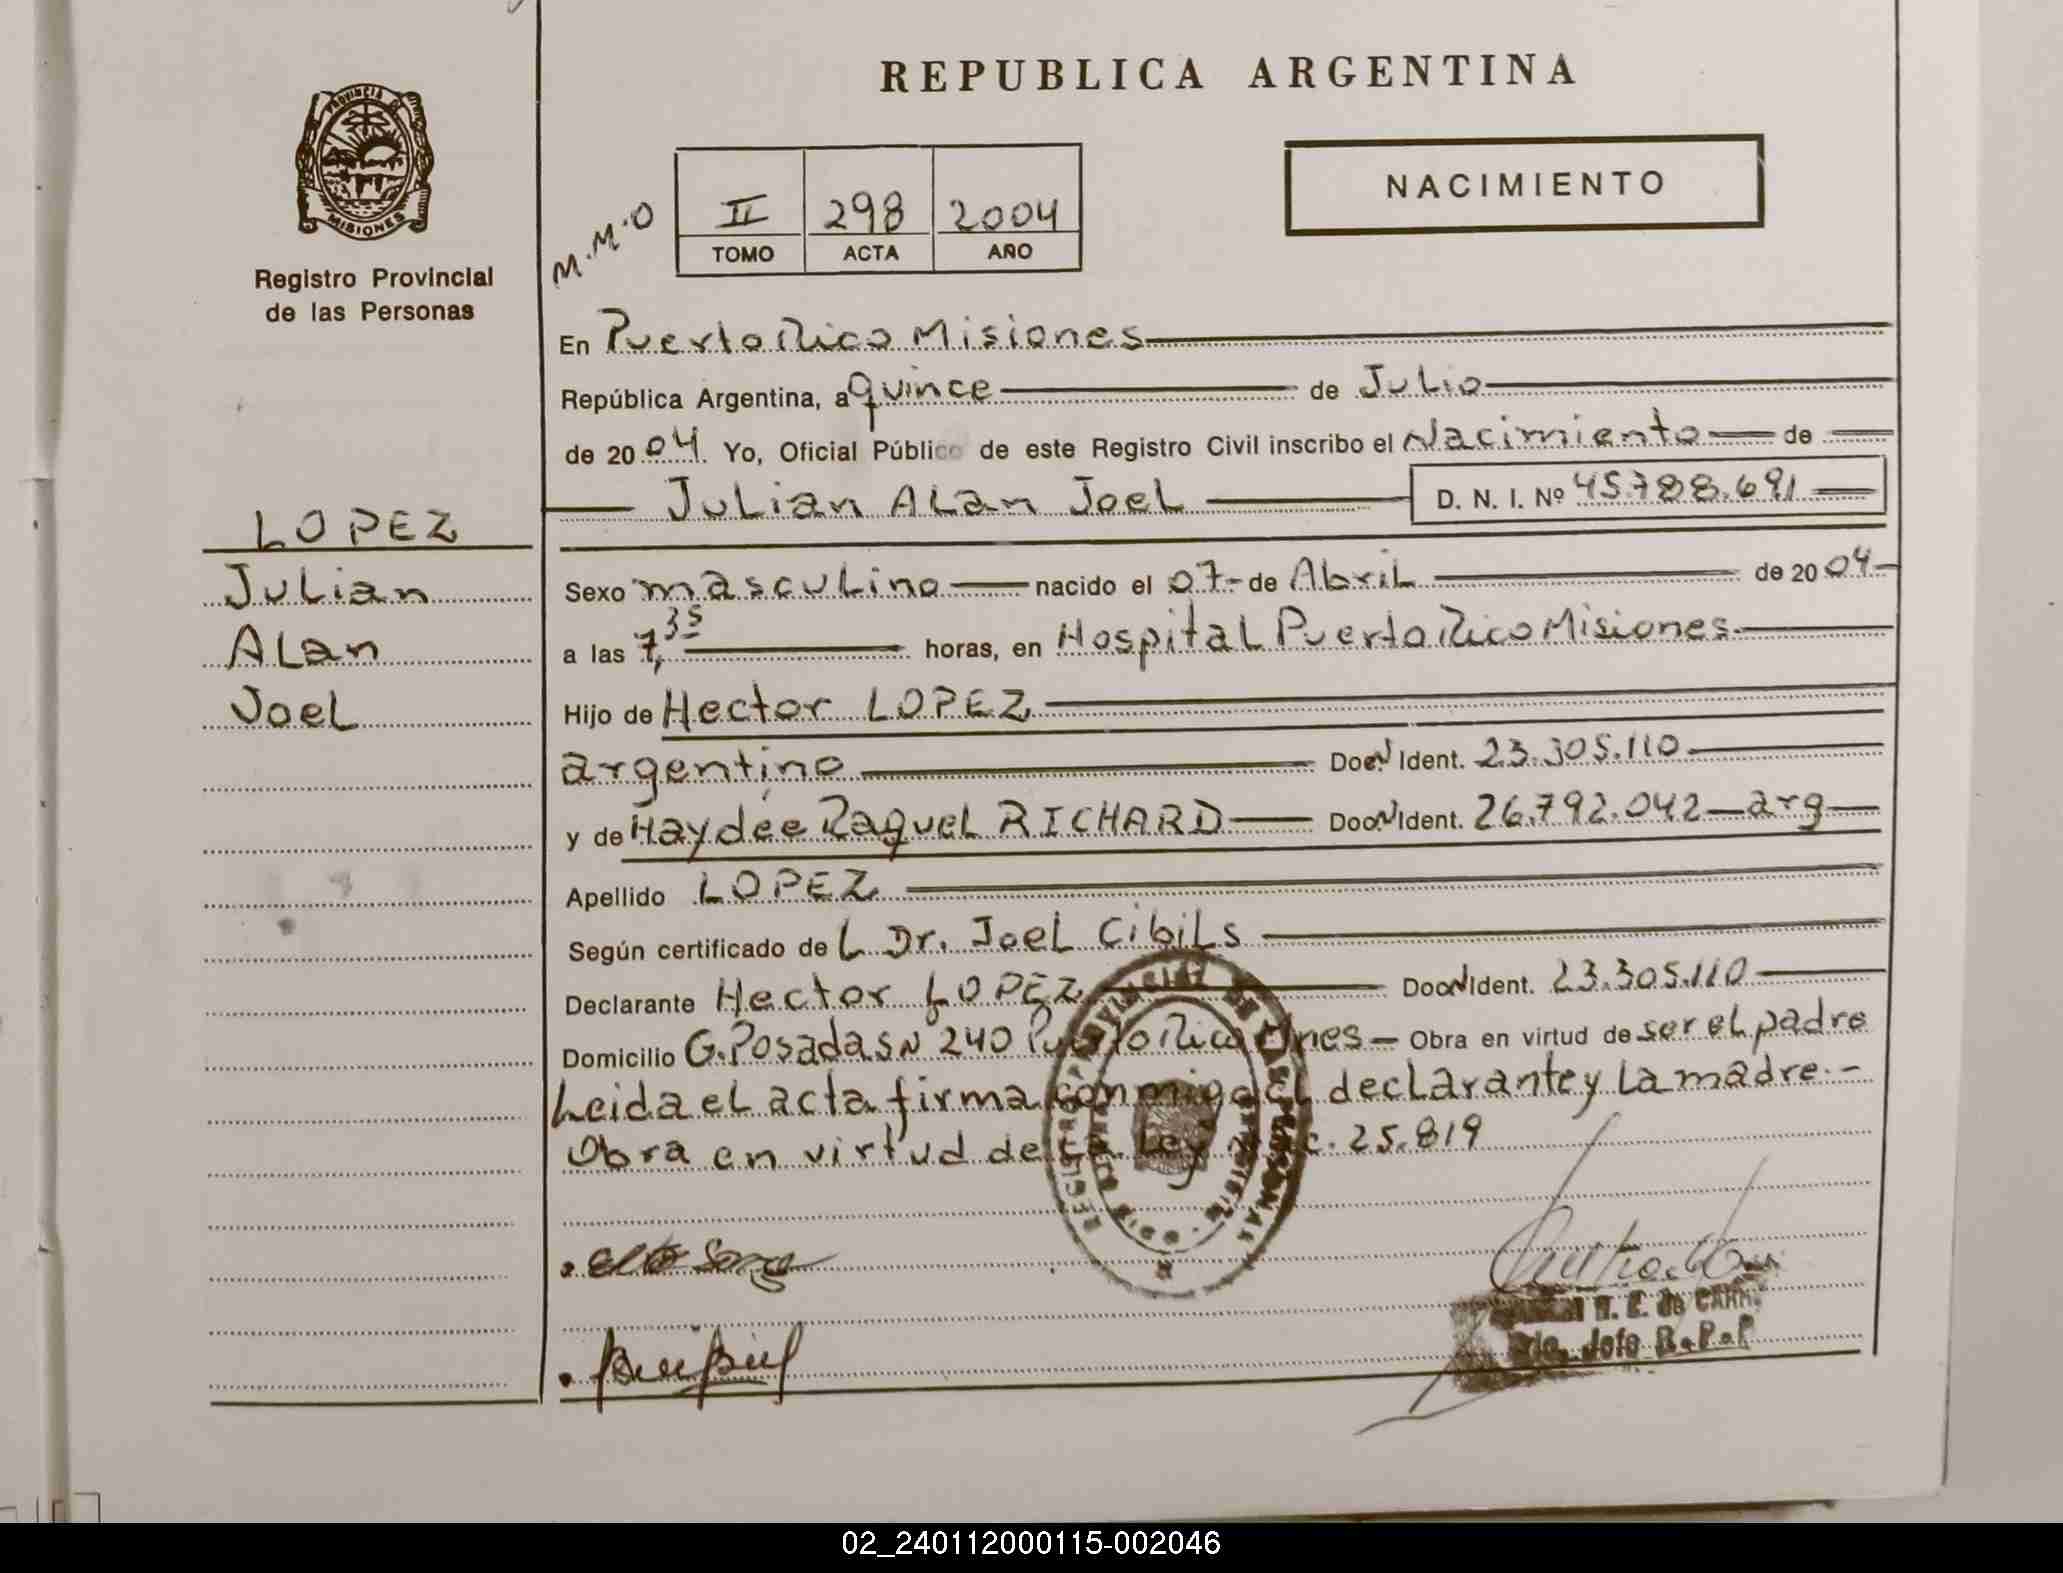 REPUBLICA ARGENTINA
PROVINCIA DE
MISIONES
Registro Provincial
de las Personas
M.M.O
II 298 2004
TOMO ACTA AÑO
NACIMIENTO
En Puerto Rico Misiones
República Argentina, a quince de Julio
de 2004. Yo, Oficial Público de este Registro Civil inscribo el Nacimiento de
Julian Alan Joel D. N. I. Nº 45.788.691
LOPEZ
Julian
Alan
Joel
Sexo masculino nacido el 07 de Abril de 2004
a las 7,35 horas, en Hospital Puerto Rico Misiones
Hijo de Hector LOPEZ
argentino Doc. N Ident. 23.305.110
y de Haydée Raquel RICHARD Doc. N Ident. 26.792.042 arg
Apellido LOPEZ
Según certificado del Dr. Joel Cibils
Declarante Hector LOPEZ Doc. N Ident. 23.305.110
Domicilio G. Posadas Nº 240 Puerto Rico Mnes Obra en virtud de ser el padre
Leida el acta firma conmigo el declarante y la madre.-
Obra en virtud de la Ley Nac. 25.819
02_240112000115-002046